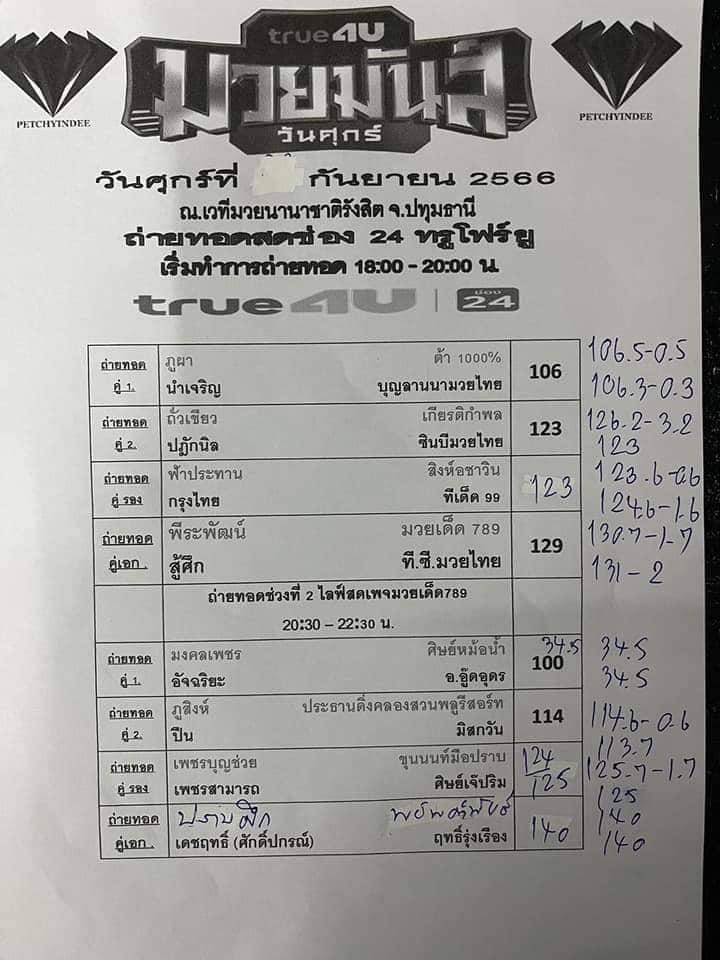 true4U
มวยมันส์
วันศุกร์
PETCHYINDEE
PETCHYINDEE
วันศุกร์ที่ กันยายน 2566
ณ.เวทีมวยนานาชาติรังสิต จ.ปทุมธานี
ถ่ายทอดสดช่อง 24 ทรูโฟร์ยู
เริ่มทำการถ่ายทอด 18:00 - 20:00 น.
true4U | ช่อง 24
ถ่ายทอด ภูผา ต้า 1000% 106 106.5-0.5
คู่ 1. นำเจริญ บุญลานนามวยไทย 106.3-0.3
ถ่ายทอด ถั่วเขียว เกียรติกำพล 123 126.2-3.2
คู่ 2. ปฎักนิล ซินบีมวยไทย 123
ถ่ายทอด ฟ้าประทาน สิงห์อชาวิน 123 123.6-0.6
คู่ รอง กรุงไทย ทีเด็ด 99 124.6-1.6
ถ่ายทอด พีระพัฒน์ มวยเด็ด 789 129 130.7-1.7
คู่เอก . สู้ศึก ที.ซี.มวยไทย 131-2
ถ่ายทอดช่วงที่ 2 ไลฟ์สดเพจมวยเด็ด789
20:30 – 22:30 น.
ถ่ายทอด มงคลเพชร ศิษย์หม้อน้ำ 34.5 34.5
คู่ 1. อัจฉริยะ อ.อู๊ดอุดร 100 34.5
ถ่ายทอด ภูสิงห์ ประธานดิ่งคลองสวนพลูรีสอร์ท 114 114.6-0.6
คู่ 2. ปืน มิสกวัน 113.7
ถ่ายทอด เพชรบุญช่วย ขุนนนท์มือปราบ 124 125.7-1.7
คู่ รอง เพชรสามารถ ศิษย์เจ๊ปริม 125 125
ถ่ายทอด ปราบศึก 140 140
คู่เอก . เดชฤทธิ์ (ศักดิ์ปกรณ์) ฤทธิ์รุ่งเรือง 140